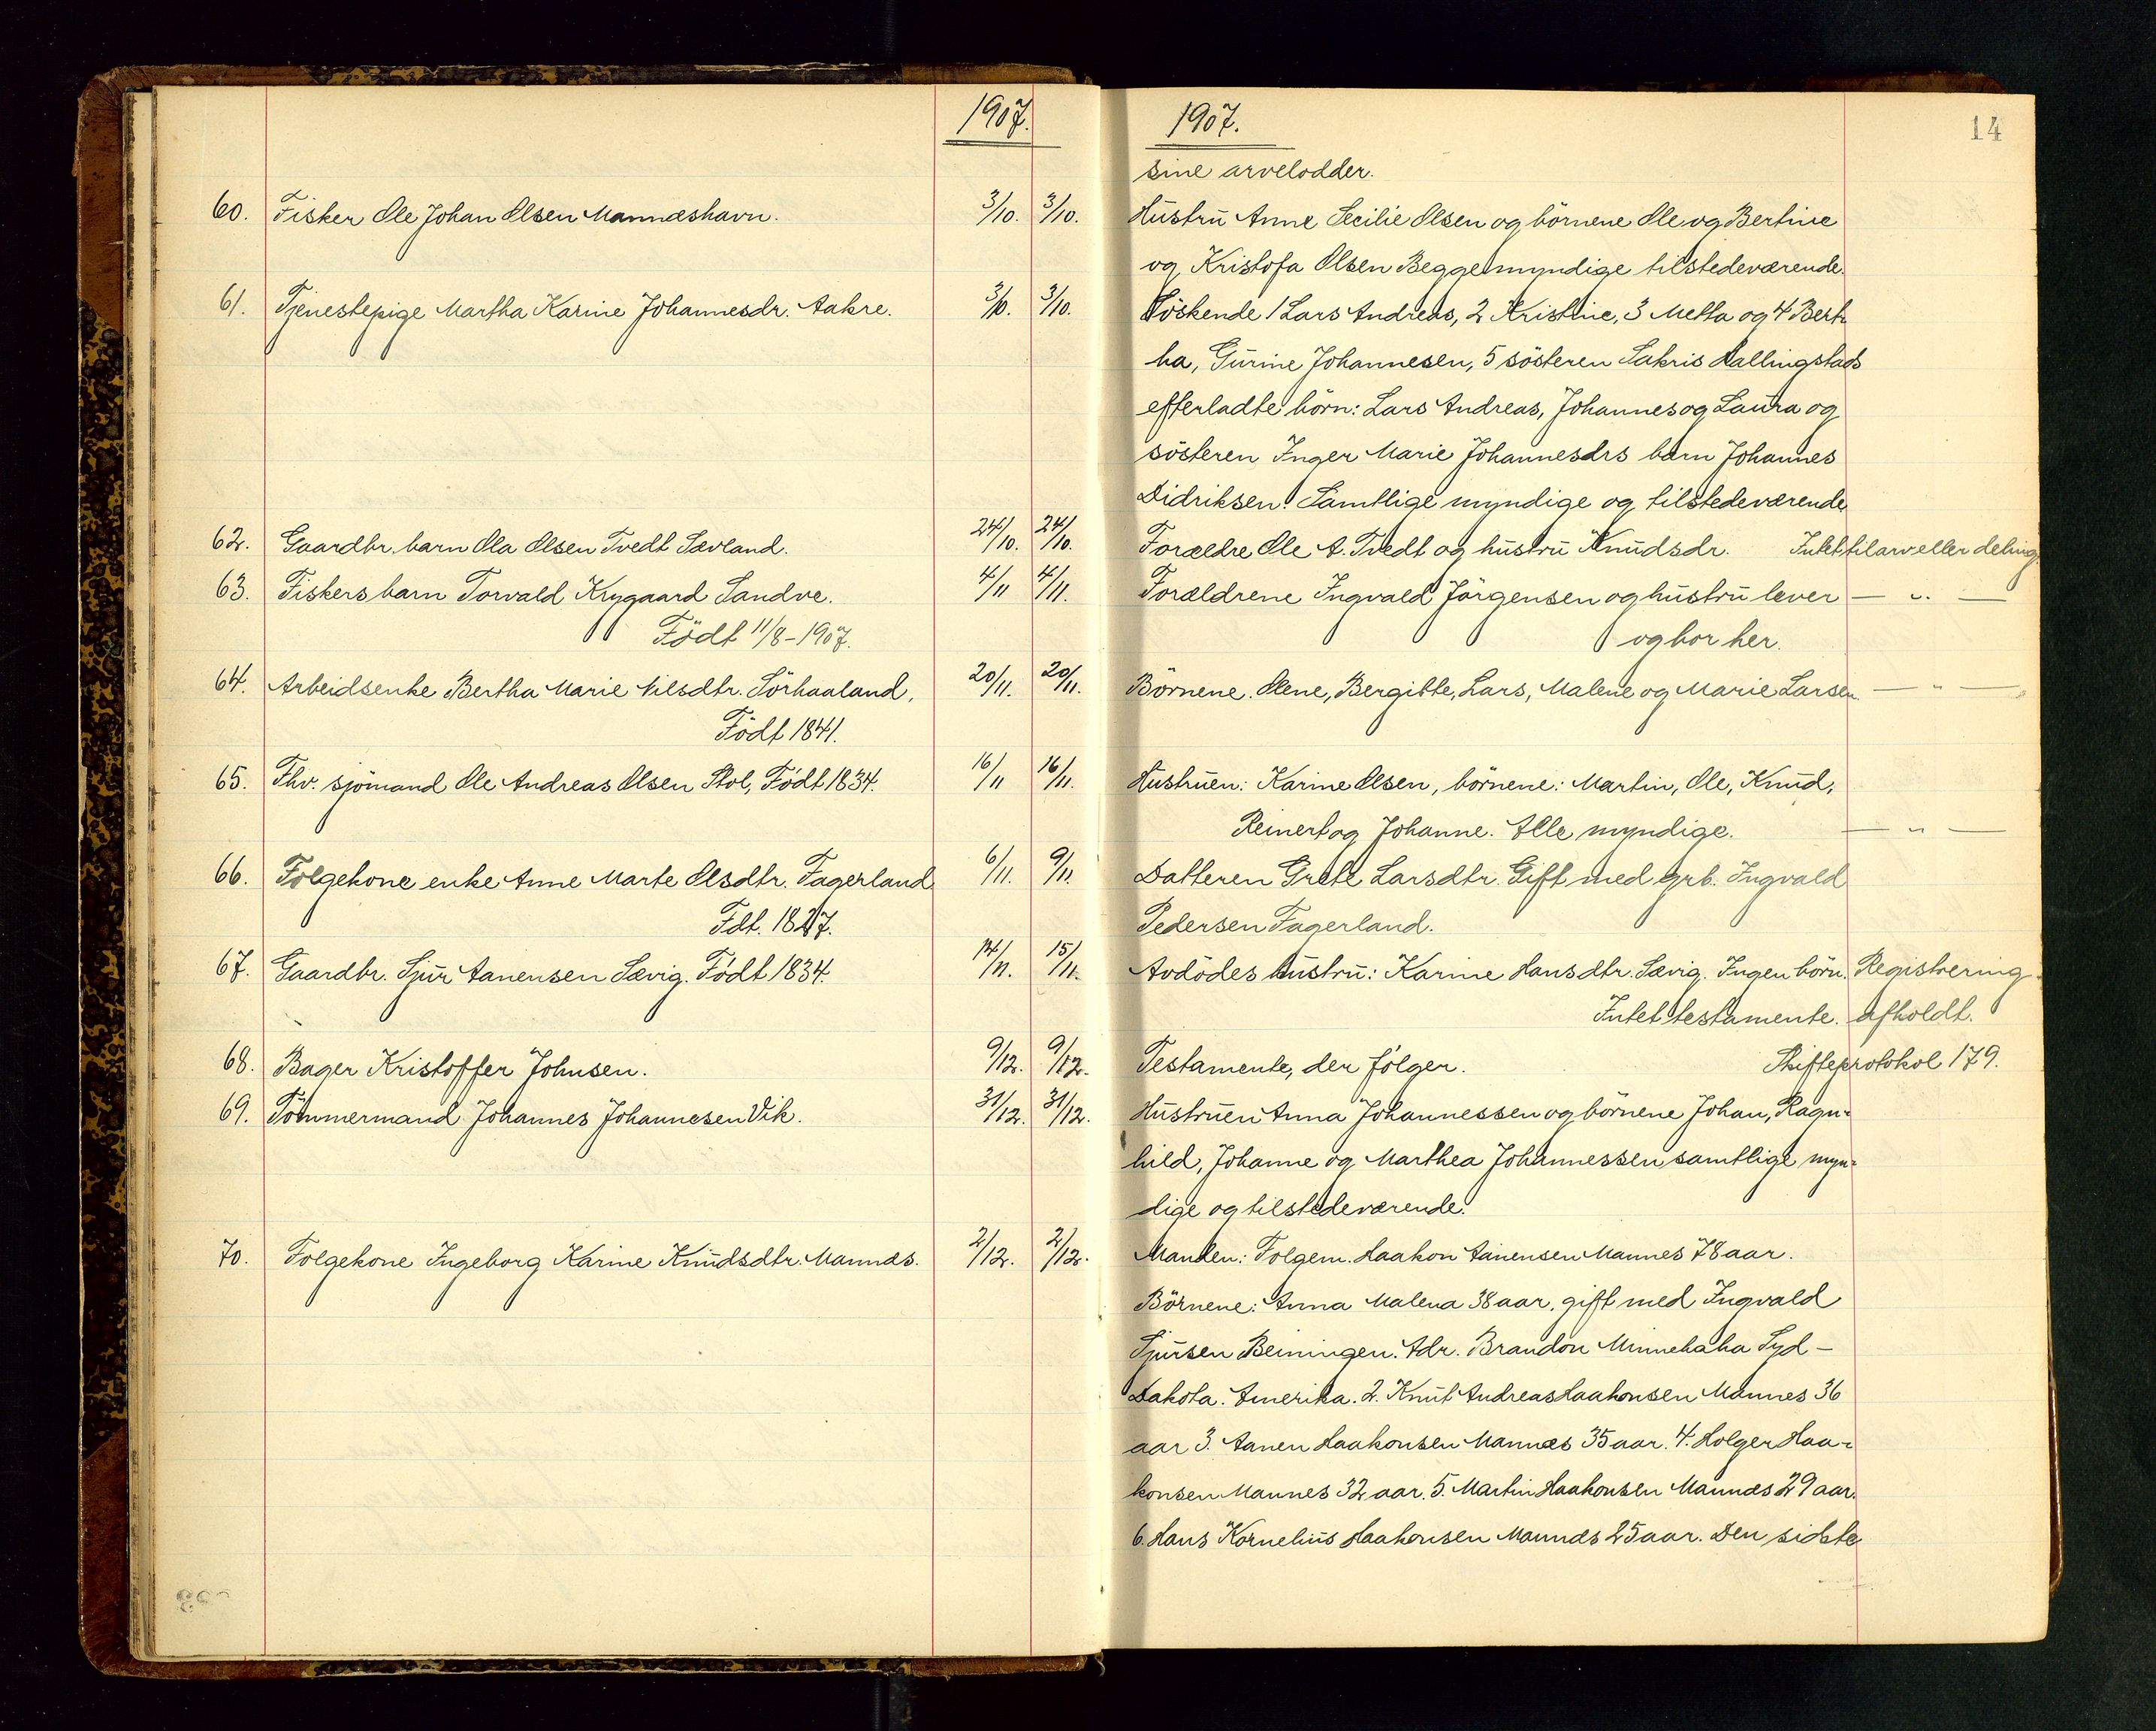 1907.
60. Fisker Ole Johan Olsen Mannæshavn. 3/10. 3/10.
61. Tjenestepige Martha Karine Johannesdr. Aakre. 3/10. 3/10.
62. Gaardbr. barn Ola Olsen Tvedt Sævland. 24/10. 24/10.
63. Fiskers barn Torvald Krygaard Sandve. 4/11 4/11.
Födt 11/8-1907.
64. Arbeidsenke Bertha Marie Nilsdtr. Sörhaaland. 20/11. 20/11.
Födt 1841.
65. Fhv. sjömand Ole Andreas Olsen Stol, Födt 1834. 16/11 16/11.
66. Folgekone enke Anne Marte Olsdtr. Fagerland 6/11. 9/11.
Fdt. 1827.
67. Gaardbr. Sjur Aanensen Sævig. Födt 1834. 14/11. 15/11.
68. Bager Kristoffer Johnsen. 9/12. 9/12.
69. Tömmermand Johannes Johannesen Vik. 31/12. 31/12.
70. Folgekone Ingeborg Karine Knudsdtr. Mannes. 2/12. 2/12.
1907.
14
sine arvelodder.
Hustru Anne Secilie Olsen og börnene Ole og Bertine
og Kristofa Olsen Begge myndige tilstedeværende.
Söskende 1 Lars Andreas, 2 Kristine, 3 Metta og 4 Bert-
ha, Gurine Johannesen, 5 sösteren Sakris Hallingstads
efterladte börn: Lars Andreas, Johannes og Laura og
sösteren Inger Marie Johannesdrs barn Johannes
Didriksen. Samtlige myndige og tilstedeværende
Forældre Ole A. Tvedt og hustru Knudsdr. Intet til arv eller deling.
Forældrene Ingvald Jörgensen og hustru lever — " —
og bor her.
Börnene. Olene, Bergitte, Lars, Malene og Marie Larsen. — " —
Hustruen: Karine Olsen, börnene: Martin, Ole, Knud,
Reinert og Johanne. Alle myndige. — " —
Datteren Grete Larsdtr. Gift med grb. Ingvald
Pedersen Fagerland.
Avdödes hustru: Karine Hansdtr. Sævig. Ingen börn. Registrering
Intet testamente. afholdt.
Testamente, der fölger. Skifteprotokol 179.
Hustruen Anna Johannessen og börnene Johan, Ragn-
hild, Johanne og Marthea Johannessen samtlige myn-
dige og tilstedeværende.
Manden: Folgem. Haakon Aanensen Mannes 78 aar.
Börnene: Anna Malena 38 aar. gift med Ingvald
Sjursen Beiningen. Adr. Brandon Minnehaha Syd-
Dakota. Amerika. 2. Knut Andreas Haakonsen Mannes 36
aar 3. Aanen Haakonsen Mannes 35 aar. 4. Holger Haa-
konsen Mannes 32 aar. 5. Martin Haakonsen Mannes 29 aar.
6. Hans Kornelius Haakonsen Mannes 25 aar. Den sidste